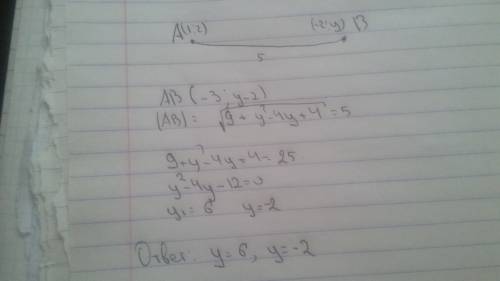 A(1;2) (-2;y) B
5
AB (-3; y-2)
|AB| = √9+y²-4y+4 = 5
9+y²-4y+4=25
y²-4y-12=0
y₁=6 y=-2
Ответ: y=6, y=-2